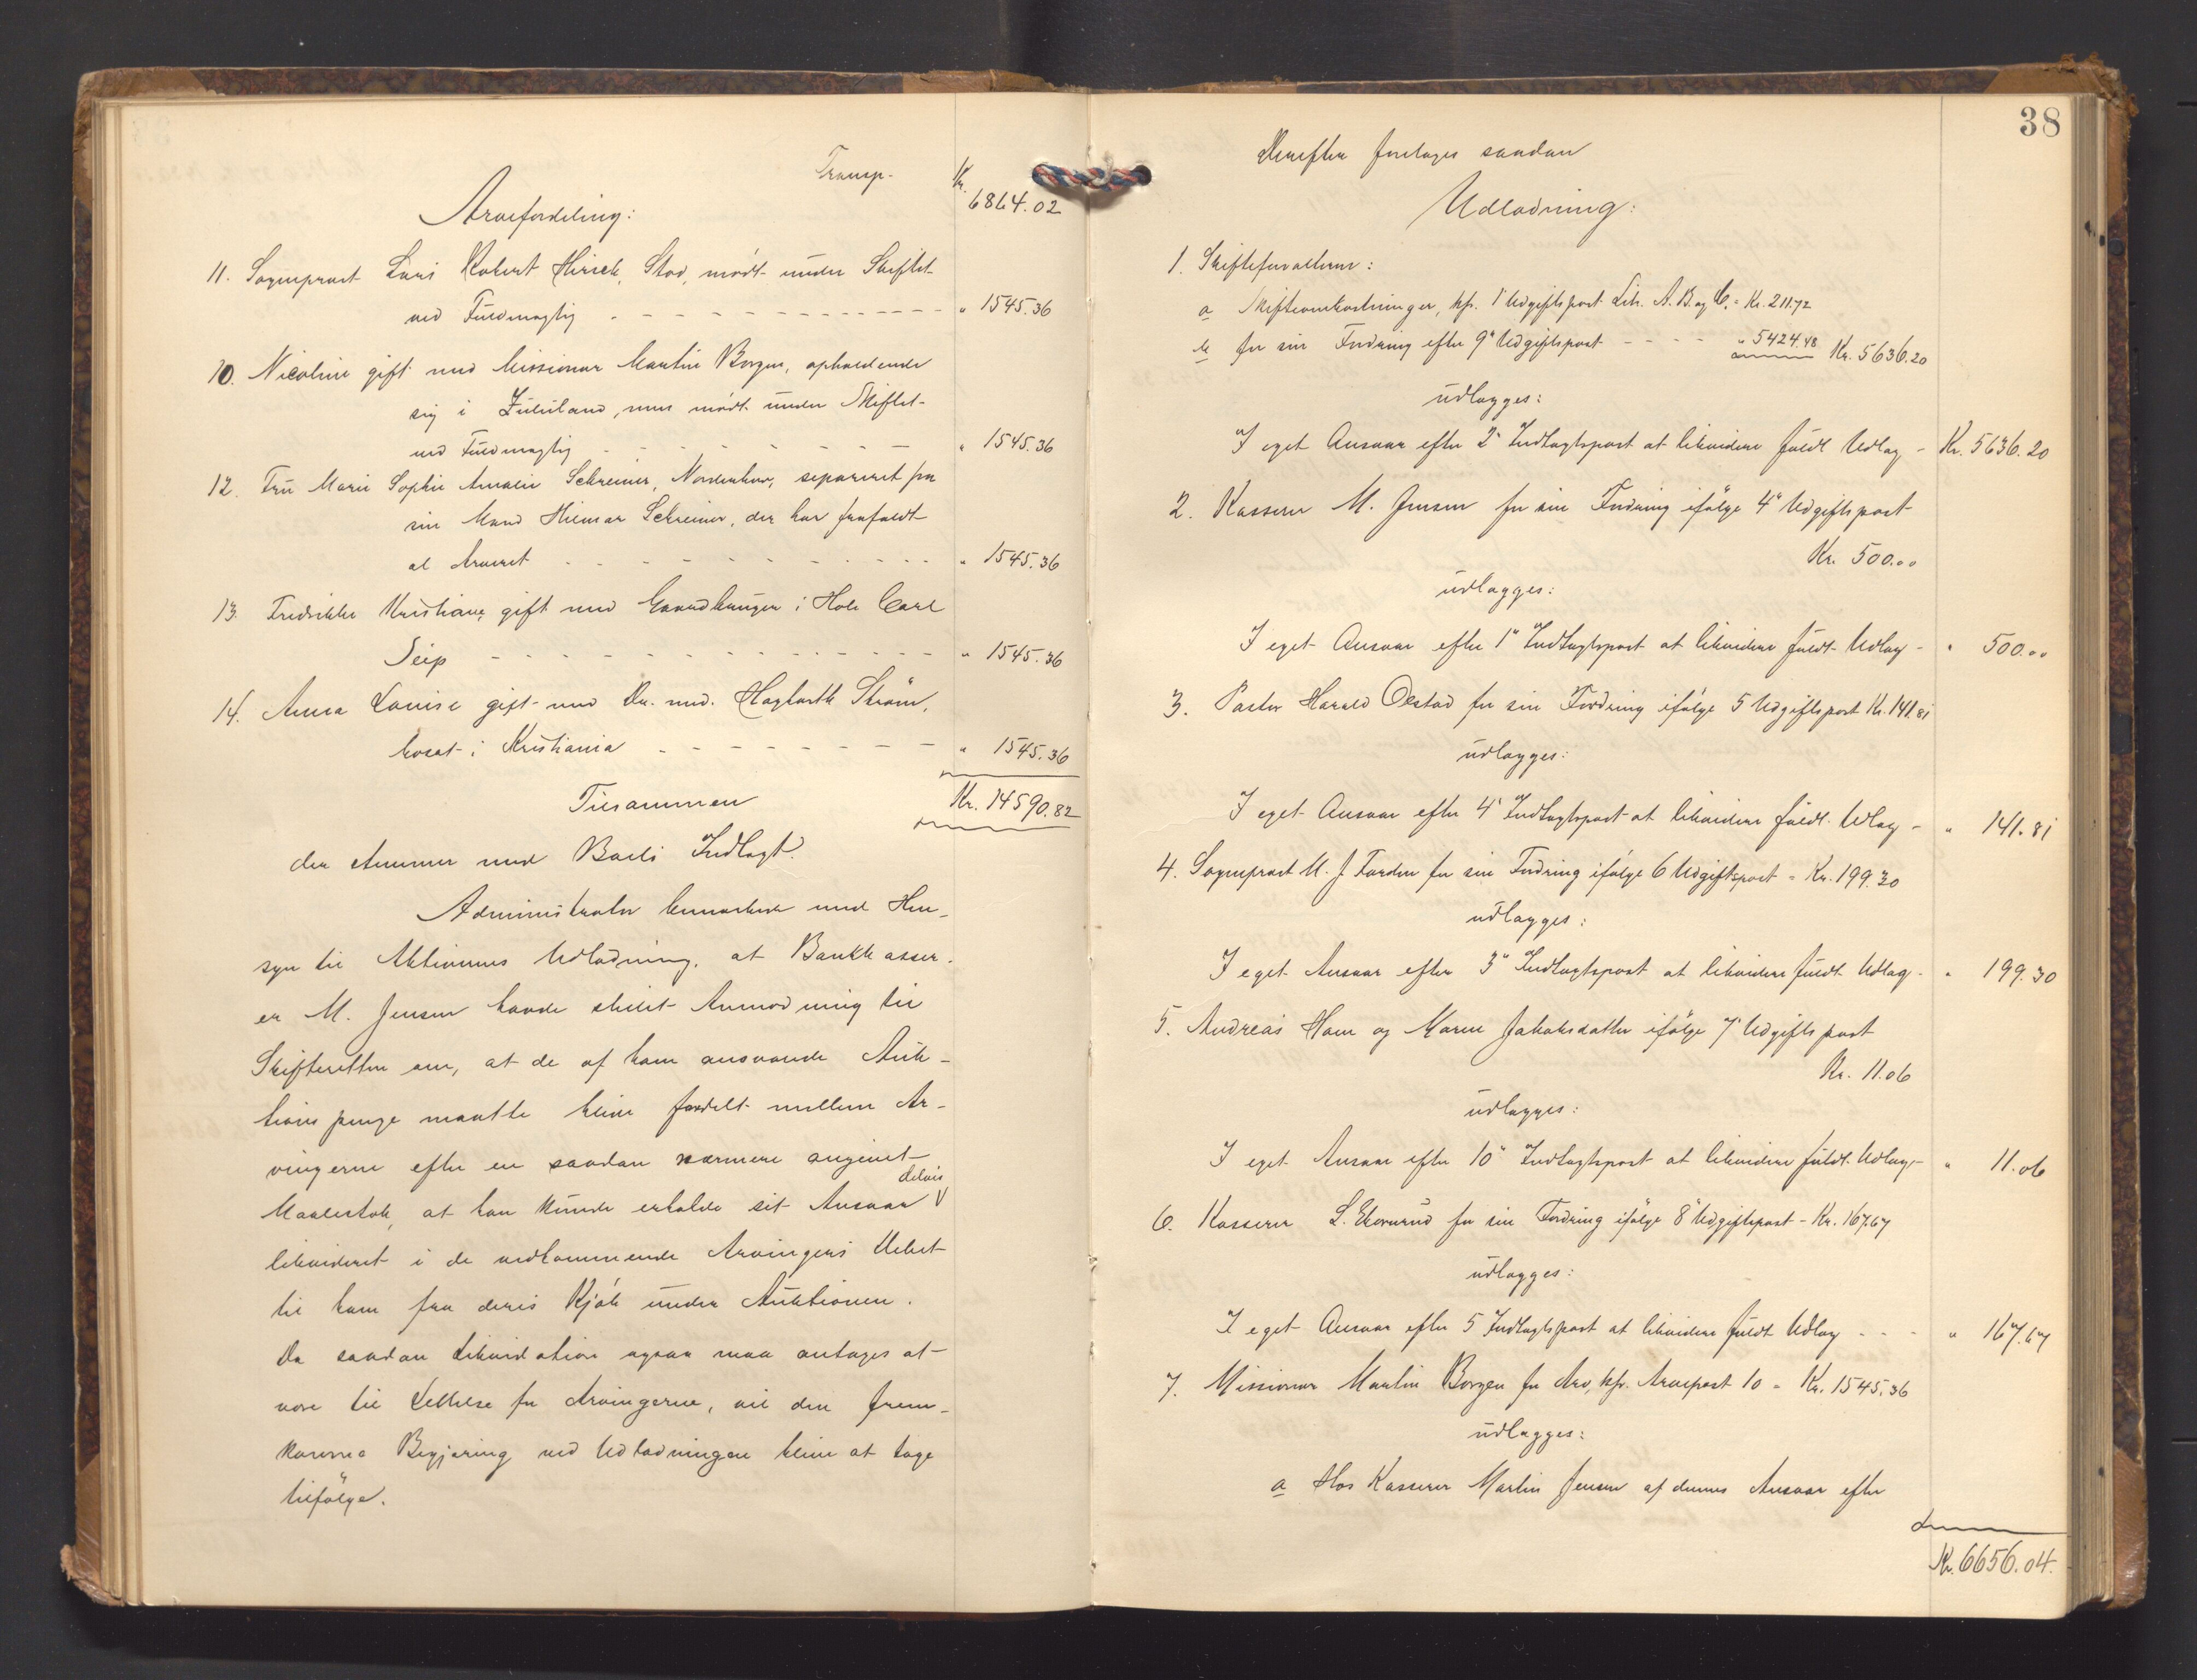 Transp. Kr. 6864.02
Arvefordeling:
11. Sogneprest Lars Robert Hirsch, Stod, mödt under Skiftet
ved Fuldmægtig - - - " 1545.36
10. Nicoline gift med Missionær Martin Borgen, opholdende
sig i Zululand, men mödt under Skiftet
ved Fuldmægtig - - - " 1545.36
12. Fru Marie Sophie Amalie Schreiner, Norderhov, separeret fra
sin Mand Hilmar Schreiner, der har frafaldt
al Arveret - - - " 1545.36
13. Fredrikke Kristiane, gift med Gaardbruger i Hole Carl
Seip - - - " 1545.36
14. Anna Louise gift med Dr. med. Hagbarth Ström,
bosat i Kristiania - - - " 1545.36
Tilsammen Kr. 14590.82
der stemmer med Boets Indtægt.
Administrator bemærkede med Hen-
syn til Aktivernes Udlodning, at Bankkasser-
er M. Jensen havde stillet Anmodning til
Skifteretten om, at de af ham ansvarede Auk-
tionspenge maatte blive fordelt mellem Ar-
vingerne efter en saadan nærmere angivet
Maalestok, at han kunde erholde sit Ansvar delvis
likvideret i de vedkommende Arvingers Debet
til ham fra deres Kjöb under Auktionen.
Da saadan Likvidation ogsaa maa antages at
være til Lettelse for Arvingerne, vil den frem-
komne Begjæring ved Udlodningen blive at tage
tilfölge.
38
Derefter foretages saadan
Udlodning:
1. Skifteforvalteren:
a Skifteomkostninger, kfr. 1' Udgiftspost Litr. A. B. og C. = Kr. 211.72
b for sin Fordring efter 9' Udgiftspost - - - " 5424.48 Kr. 5636.20
udlægges:
I eget Ansvar efter 2' Indtægtspost at likvidere fuldt Udlæg - Kr. 5636.20
2. Kasserer M. Jensen for sin Fordring ifölge 4" Udgiftspost
Kr. 500.00
udlægges:
I eget Ansvar efter 1" Indtægtspost at likvidere fuldt Udlæg - " 500.00
3. Pastor Harald Olstad for sin Fordring ifölge 5 Udgiftspost Kr. 141.81
udlægges:
I eget Ansvar efter 4' Indtægtspost at likvidere fuldt Udlæg - " 141.81
4. Sogneprest M. J. Færden for sin Fordring ifölge 6 Udgiftspost = Kr. 199.30
udlægges:
I eget Ansvar efter 3" Indtægtspost at likvidere fuldt Udlæg - " 199.30
5. Andreas Hom og Karen Jakobsdatter ifölge 7' Udgiftspost
Kr. 11.06
udlægges:
I eget Ansvar efter 10" Indtægtspost at likvidere fuldt Udlæg - " 11.06
6. Kasserer L. Ekornrud for sin Fordring ifölge 8" Udgiftspost - Kr. 167.67
udlægges:
I eget Ansvar efter 5 Indtægtspost at likvidere fuldt Udlæg - - - " 167.67
7. Missionær Martin Borgen for Arv, kfr. Arvepost 10 = Kr. 1545.36
udlægges:
a Hos Kasserer Martin Jensen af dennes Ansvar efter
Kr. 6656.04.